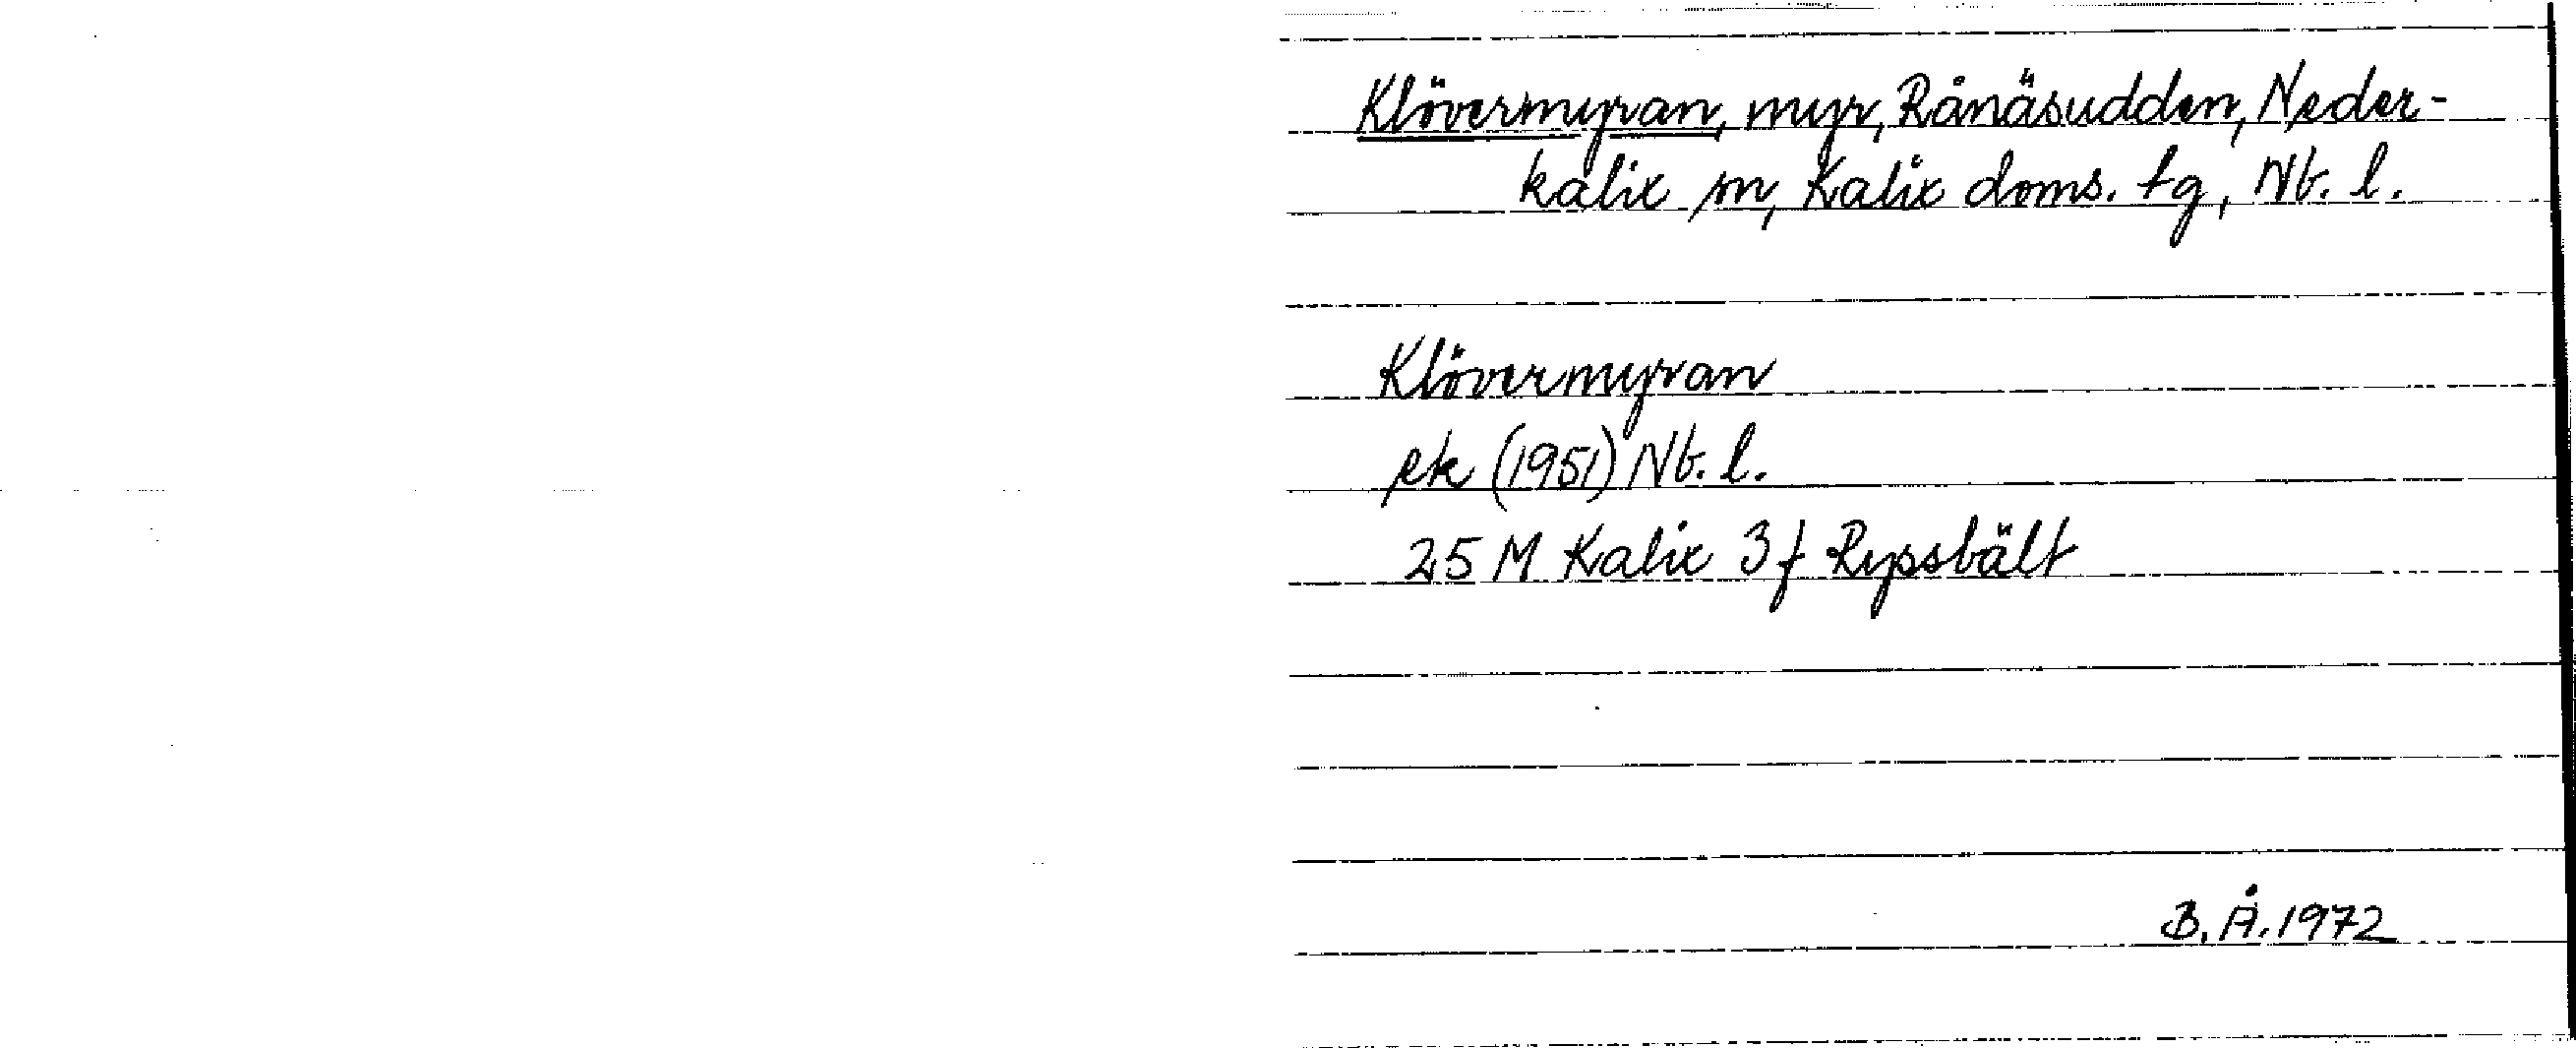 Klövermyran, myr, Rånäsudden, Neder-
kalix sn, Kalix doms. tg, Nb. l.
Klövermyran
ek (1951) Nb. l.
25 M Kalix 3 f Ryssbält
B. Å. 1972